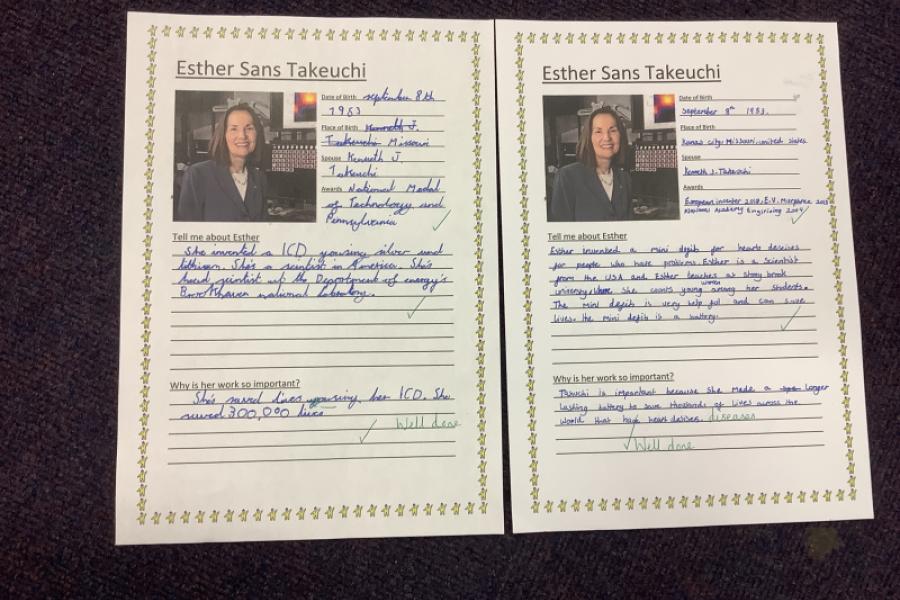 Esther Sans Takeuchi
Date of Birth september 8th
1953
Place of Birth Kenneth J.
Takeuchi Missouri
Spouse Kenneth J.
Takeuchi
Awards National Medal
of Technology and
Pennsylvania
Tell me about Esther
She invented a ICD yousing silver and
lithium. She's a scintist in America. She's
head scientist of the Department of energy's
Brookhaven national labatory.
Why is her work so important?
She's saved lives yousing her ICD. She
saved 300,000 lives
Well done
Esther Sans Takeuchi
Date of Birth
September 8th 1953.
Place of Birth
Kansas city, Missouri, united states
Spouse
Kenneth J. Takeuchi
Awards
European inventer 2018. E.V. 2013
National Academy Enginiring 2004
Tell me about Esther
Esther invented a mini defib for hearts deseises
for people who have problems. Esther is a Scientist
from the USA and Esther teaches at stony brook
university. She counts young women among her students.
The mini defib is very help ful and can save
lives. the mini defib is a battery.
Why is her work so important?
is important because She made a longer
lasting battery to save thousands of lives across the
world that have heart deseises. diseases
Well done